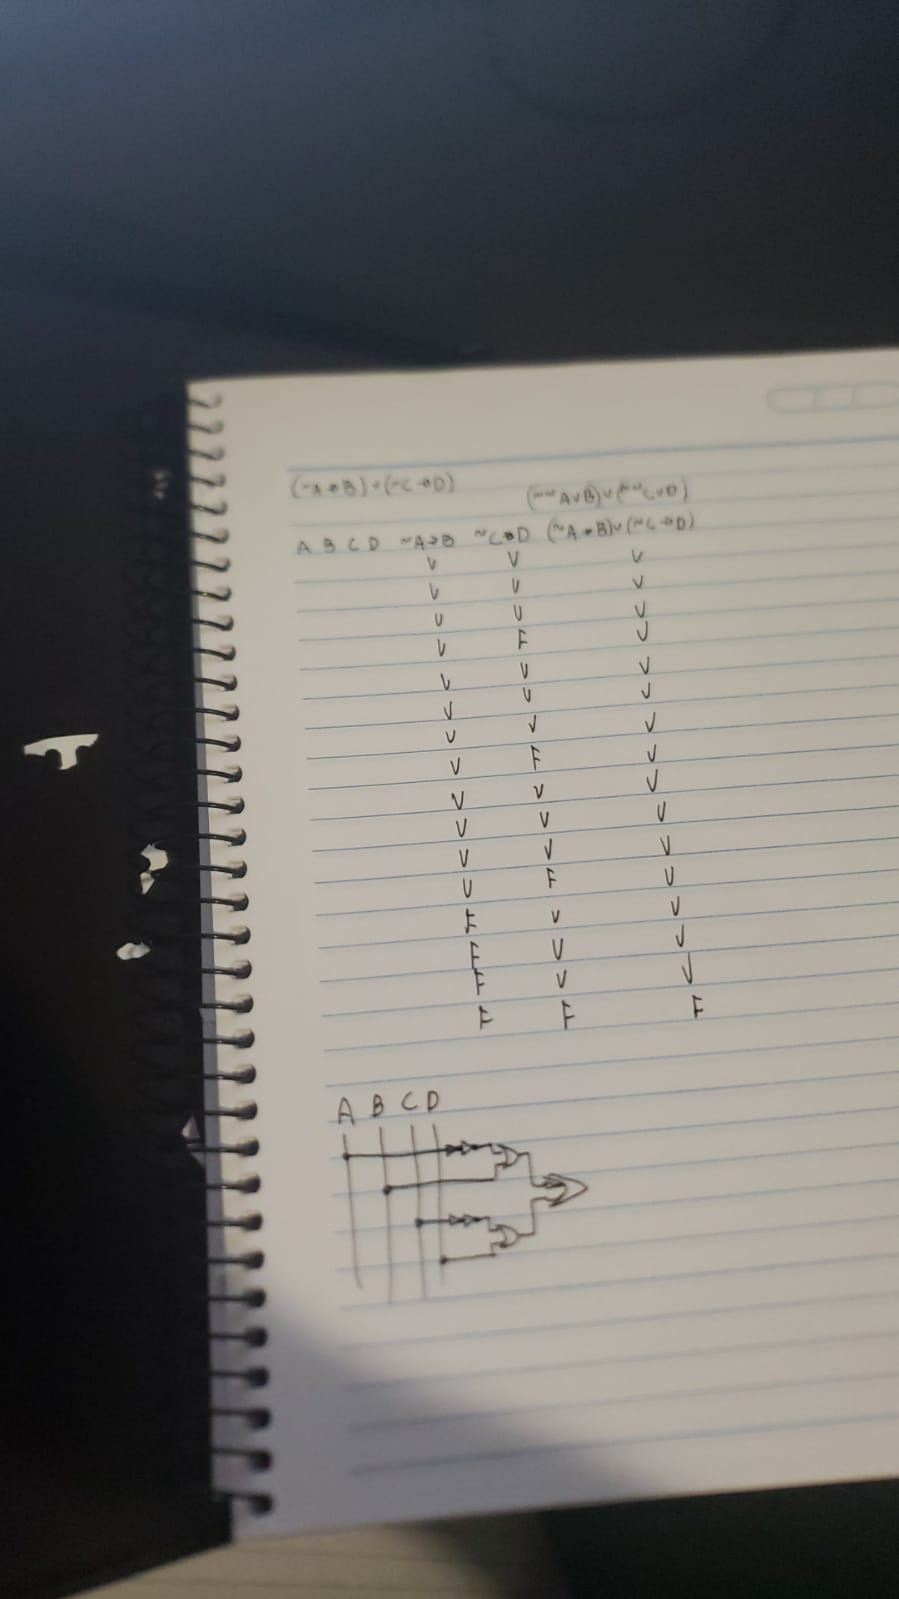 (~A→B)∨(~C→D)
(~~A∨B)∨(~~C∨D)
A B C D ~A→B ~C→D (~A→B)∨(~C→D)
V V V
V V V
V V V
V F V
V V V
V V V
V V V
V F V
V V V
V V V
V V V
V F V
F V V
F V V
F V V
F F F
A B C D